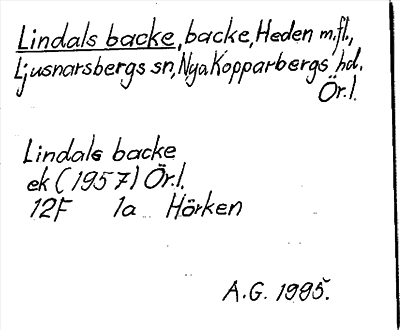 Lindals backe, backe, Heden m.fl.,
Ljusnarsbergs sn, Nya Kopparbergs hd.
Ör.l.
Lindals backe
ek (1957) Ör.l.
12F 1a Hörken
A.G. 1995.